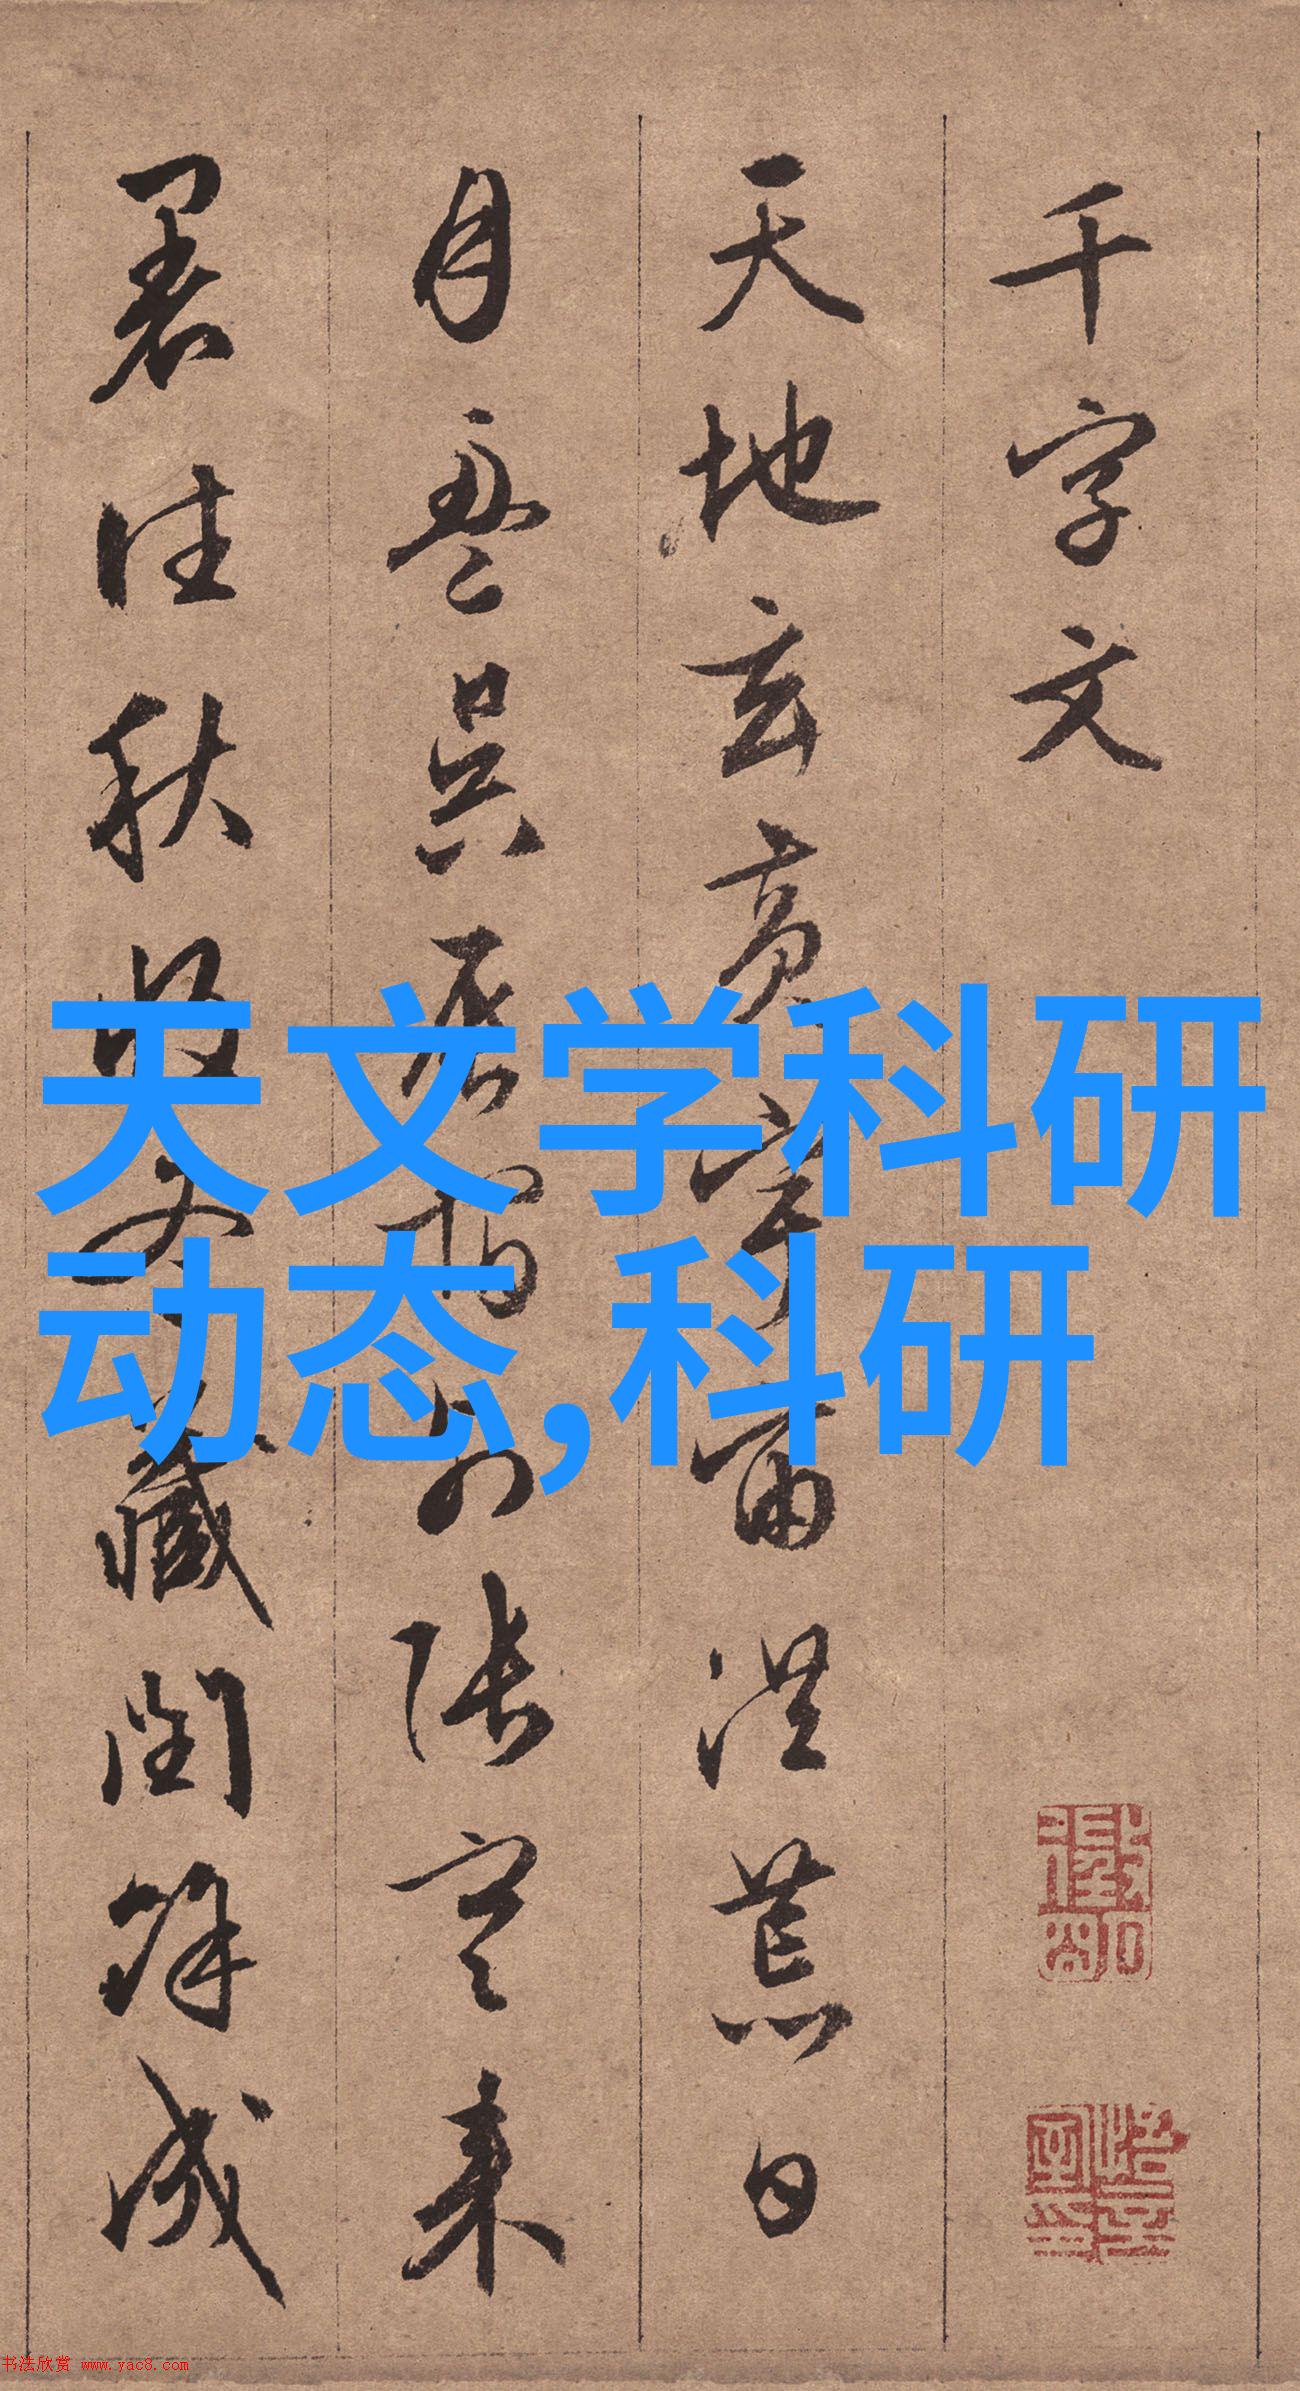 千字文
天地玄黄宇宙洪荒日
月盈昃辰宿列張寒来
暑往秋收冬藏閏餘成
天文学科研
动态,科研
书法欣赏 www.yac8.com